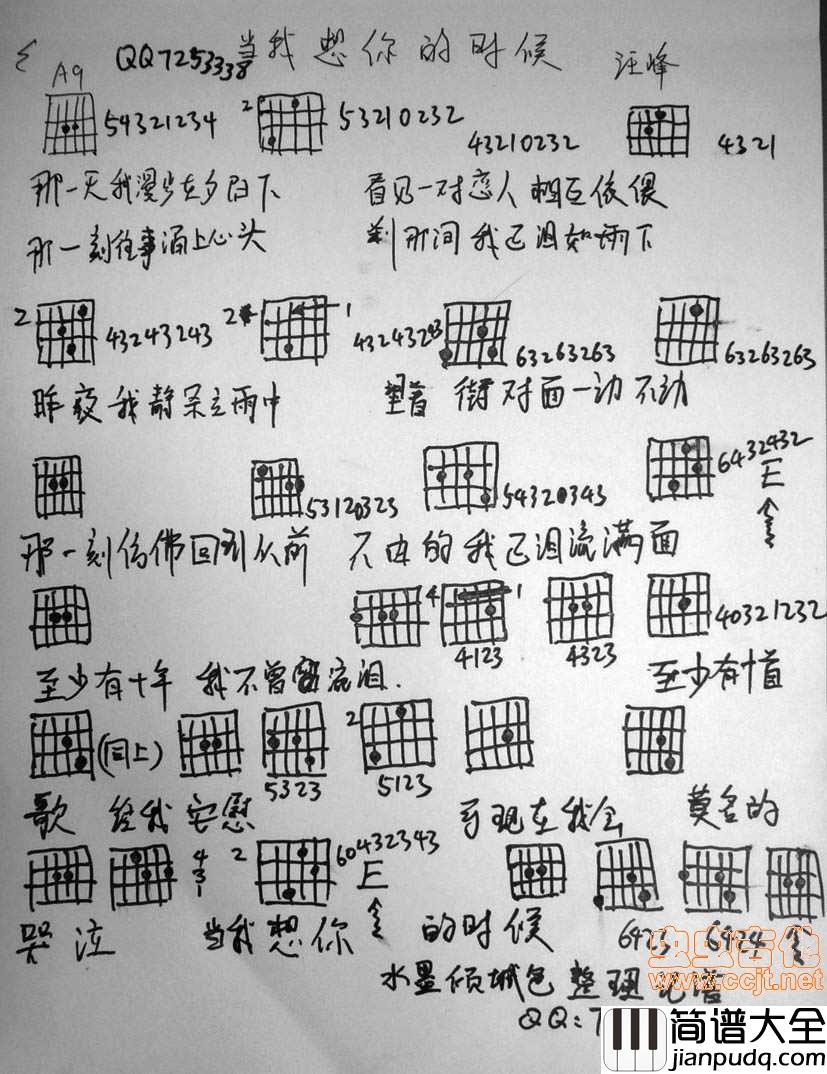 QQ7253338 当我想你的时候 汪峰
A9
54321234 2 53210232 43210232 4321
那一天我漫步在夕阳下 看见一对恋人相互依偎
那一刻往事涌上心头 刹那间我已泪如雨下
2 43243243 2 1 43243243 63263263 63263263
昨夜我静呆立雨中 望着街对面一动不动
53120323 54320343 6432432 E
那一刻仿佛回到从前 不由的我已泪流满面
4 1 4123 4323 40321232
至少有十年 我不曾流泪. 至少有十首
(同上) 5323 2 5123
歌 给我安慰 可现在我会 莫名的
4 3 1 2 60432343 E
哭泣 当我想你 的时候 6423 6424
水墨倾城色 整理
QQ:7
虫虫吉他
www.ccjt.net
简谱大全
jianpudq.com